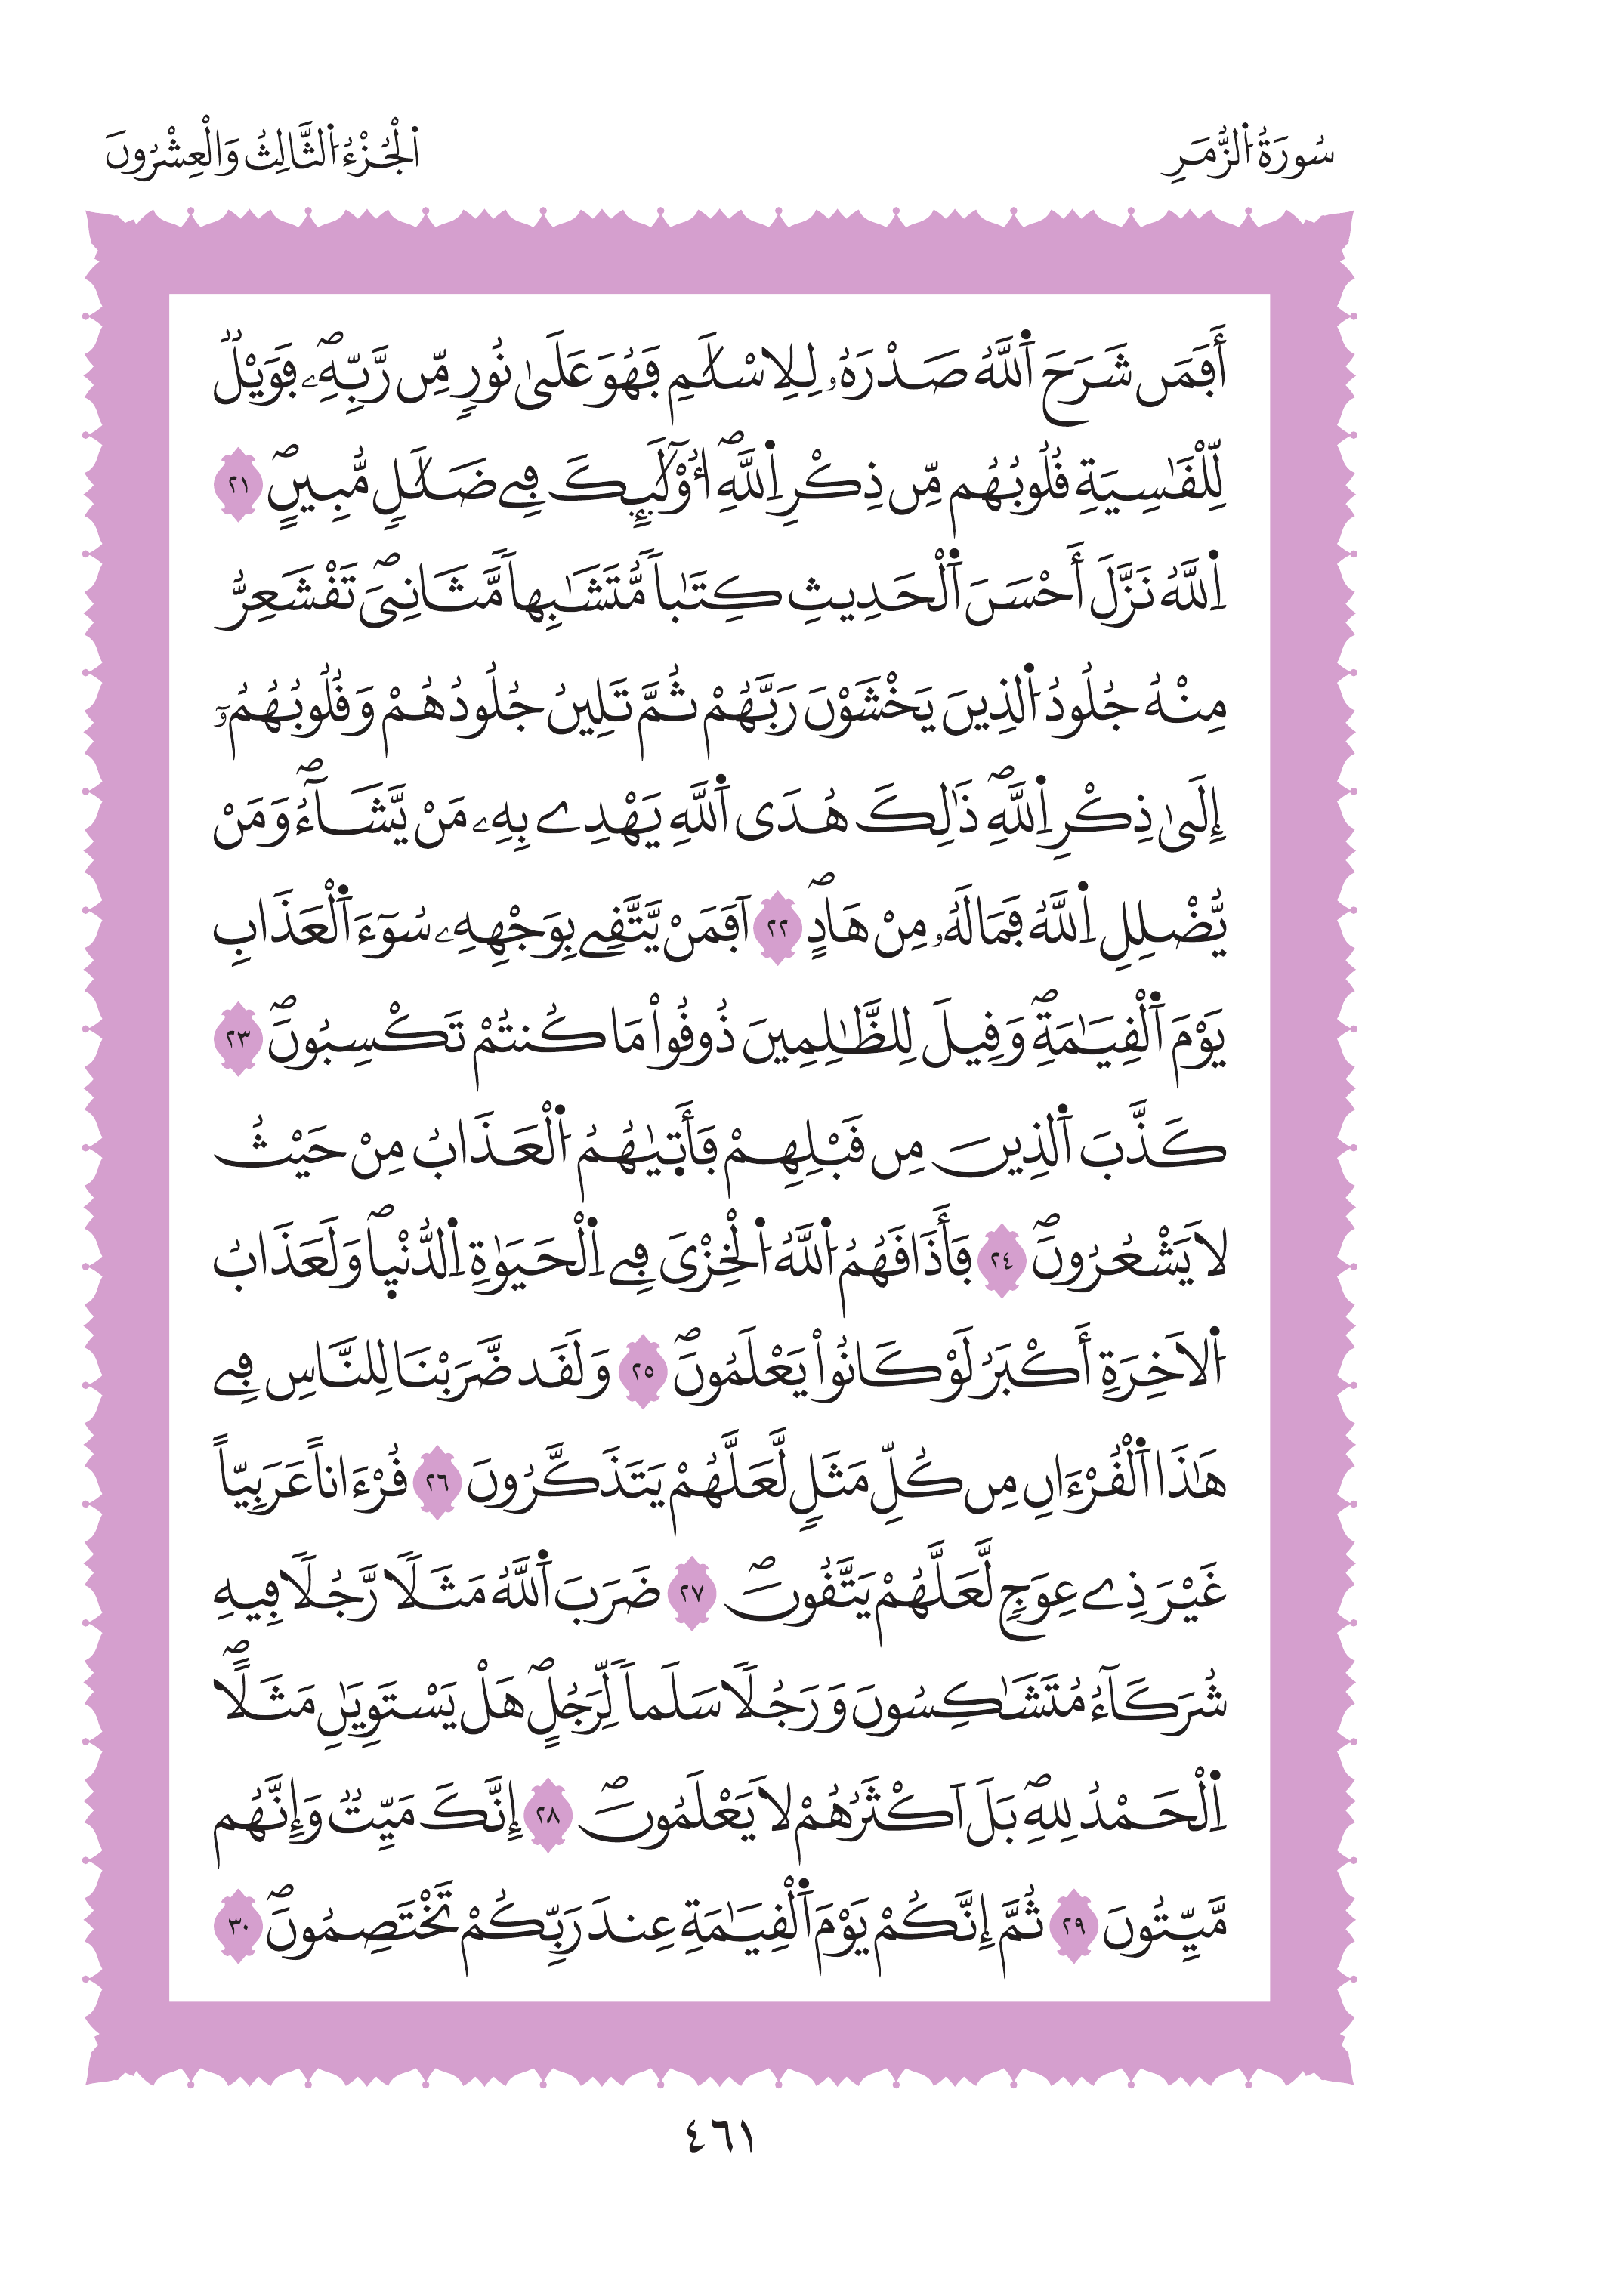 سُورَةُ الزُّمَرِ
الْجُزْءُ الثَّالِثُ وَالْعِشْرُونَ
أَفَمَن شَرَحَ اَ۬للَّهُ صَدْرَهُۥ لِلِاسْلَٰمِ فَهُوَ عَلَىٰ نُورٖ مِّن رَّبِّهِۦۖ فَوَيْلٞ
لِّلْقَٰسِيَةِ قُلُوبُهُم مِّن ذِكْرِ اِ۬للَّهِۖ أُوْلَٰٓئِكَ فِے ضَلَٰلٖ مُّبِينٍۖ ٢١
اِ۬للَّهُ نَزَّلَ أَحْسَنَ اَ۬لْحَدِيثِ كِتَٰباٗ مُّتَشَٰبِهاٗ مَّثَانِىَۖ تَقْشَعِرُّ
مِنْهُ جُلُودُ اُ۬لذِينَ يَخْشَوْنَ رَبَّهُمْ ثُمَّ تَلِينُ جُلُودُهُمْ وَقُلُوبُهُمُۥٓ
إِلَىٰ ذِكْرِ اِ۬للَّهِۖ ذَٰلِكَ هُدَى اَ۬للَّهِ يَهْدِے بِهِۦ مَنْ يَّشَآءُۖ وَمَنْ
يُّضْلِلِ اِ۬للَّهُ فَمَا لَهُۥ مِنْ هَادٍۖ ٢٢ اَفَمَنْ يَّتَّقِے بِوَجْهِهِۦ سُوٓءَ اَ۬لْعَذَابِ
يَوْمَ اَ۬لْقِيَٰمَةِۖ وَقِيلَ لِلظَّٰلِمِينَ ذُوقُواْ مَا كُنتُمْ تَكْسِبُونَۖ ٢٣
كَذَّبَ اَ۬لذِينَ مِن قَبْلِهِمْ فَأَت۪يٰهُمُ اُ۬لْعَذَابُ مِنْ حَيْثُ
لَا يَشْعُرُونَۖ ٢٤ فَأَذَاقَهُمُ اُ۬للَّهُ اُ۬لْخِزْىَ فِے اِ۬لْحَيَوٰةِ اِ۬لدُّنْي۪اۖ وَلَعَذَابُ
اُ۬لَاخِرَةِ أَكْبَرُ لَوْ كَانُواْ يَعْلَمُونَۖ ٢٥ وَلَقَد ضَّرَبْنَا لِلنَّاسِ فِے
هَٰذَا اَ۬لْقُرْءَانِ مِن كُلِّ مَثَلٖ لَّعَلَّهُمْ يَتَذَكَّرُونَ ٢٦ قُرْءَاناً عَرَبِيّاً
غَيْرَ ذِے عِوَجٖ لَّعَلَّهُمْ يَتَّقُونَۖ ٢٧ ضَرَبَ اَ۬للَّهُ مَثَلاٗ رَّجُلاٗ فِيهِ
شُرَكَآءُ مُتَشَٰكِسُونَ وَرَجُلاٗ سَلَماٗ لِّرَجُلٍۖ هَلْ يَسْتَوِيَٰنِ مَثَلاًۖ
اِ۬لْحَمْدُ لِلهِۖ بَلَ اَكْثَرُهُمْ لَا يَعْلَمُونَۖ ٢٨ إِنَّكَ مَيِّتٞ وَإِنَّهُم
مَّيِّتُونَ ٢٩ ثُمَّ إِنَّكُمْ يَوْمَ اَ۬لْقِيَٰمَةِ عِندَ رَبِّكُمْ تَخْتَصِمُونَۖ ٣٠
٤٦١